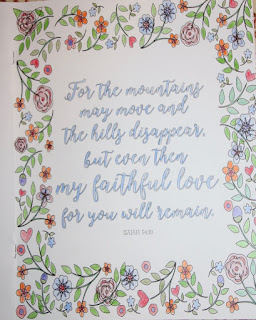 For the mountains
may move and
the hills disappear,
but even then
my faithful love
for you will remain.
ISAIAH 54:10